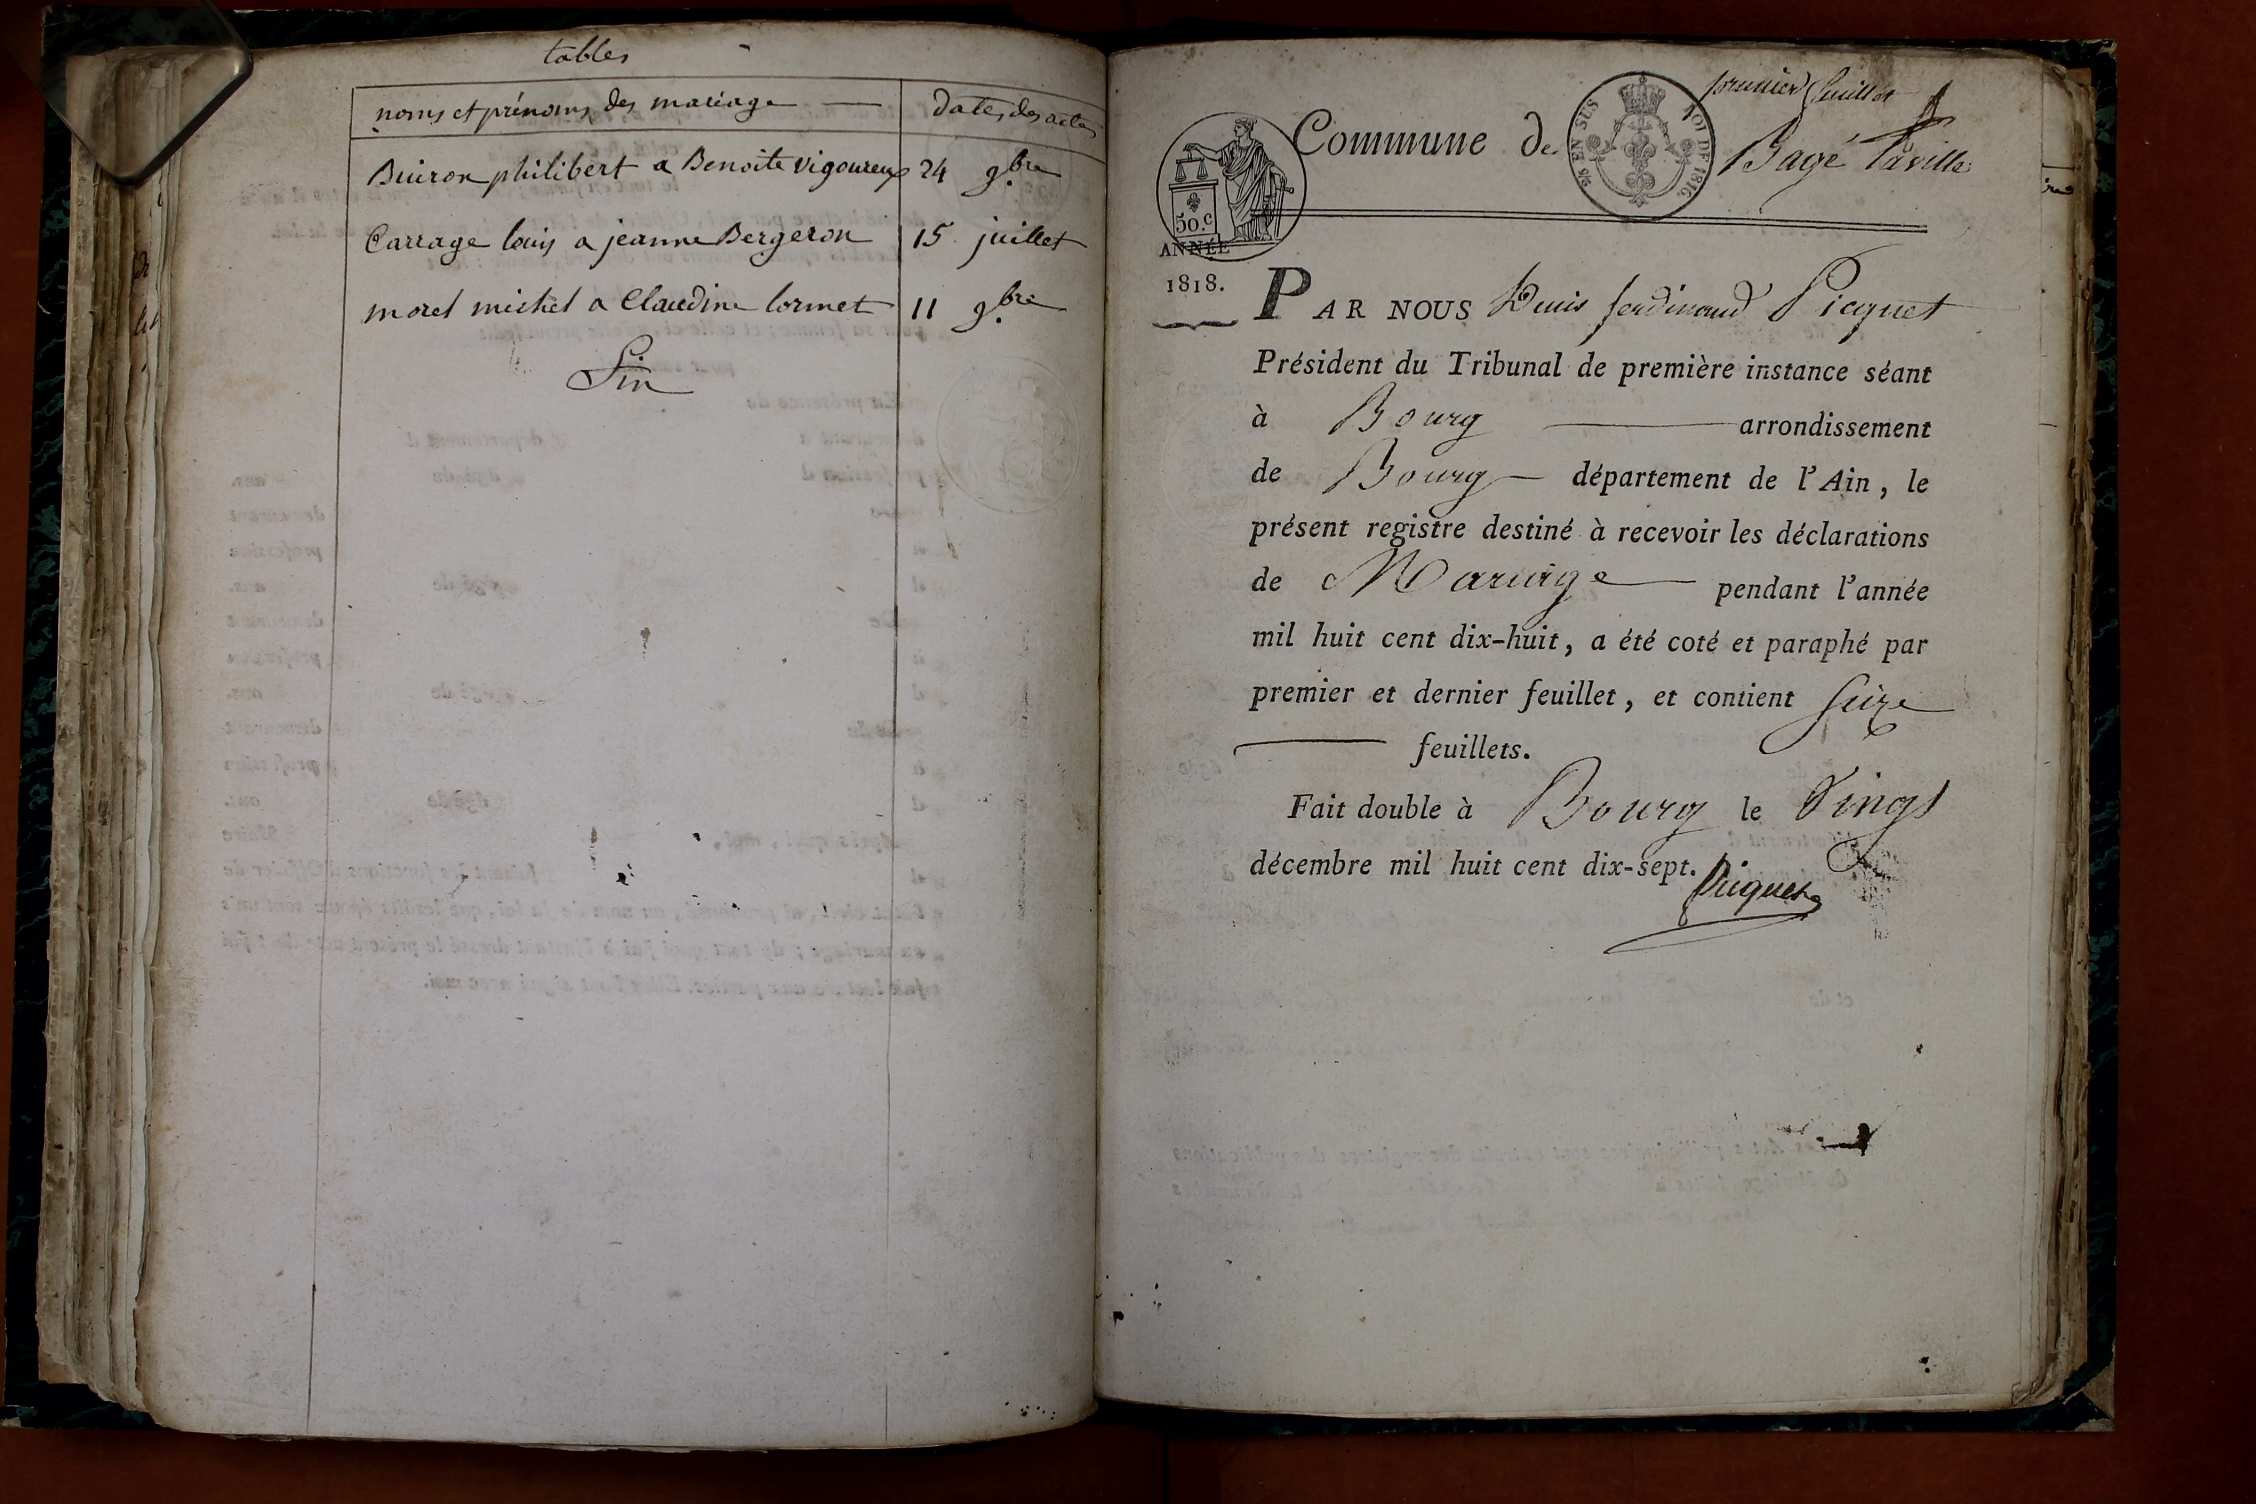 tables
noms et prénoms des mariage
dates des actes
Buiron philibert a Benoite vigoureux 24 9.bre
Carrage louis a jeanne Bergeron 15 juillet
morel michel a Claudine Cormet 11 9.bre
Fin
premier feuillet
Commune de Bagé laville
50.c
¼ EN SUS LOI DE 1816.
ANNÉE
1818.
PAR NOUS Denis ferdinand Picquet
Président du Tribunal de première instance séant
à Bourg arrondissement
de Bourg département de l'Ain, le
présent registre destiné à recevoir les déclarations
de Mariage pendant l'année
mil huit cent dix-huit, a été coté et paraphé par
premier et dernier feuillet, et contient Seize
feuillets.
Fait double à Bourg le Vingt
décembre mil huit cent dix-sept.
Picquet